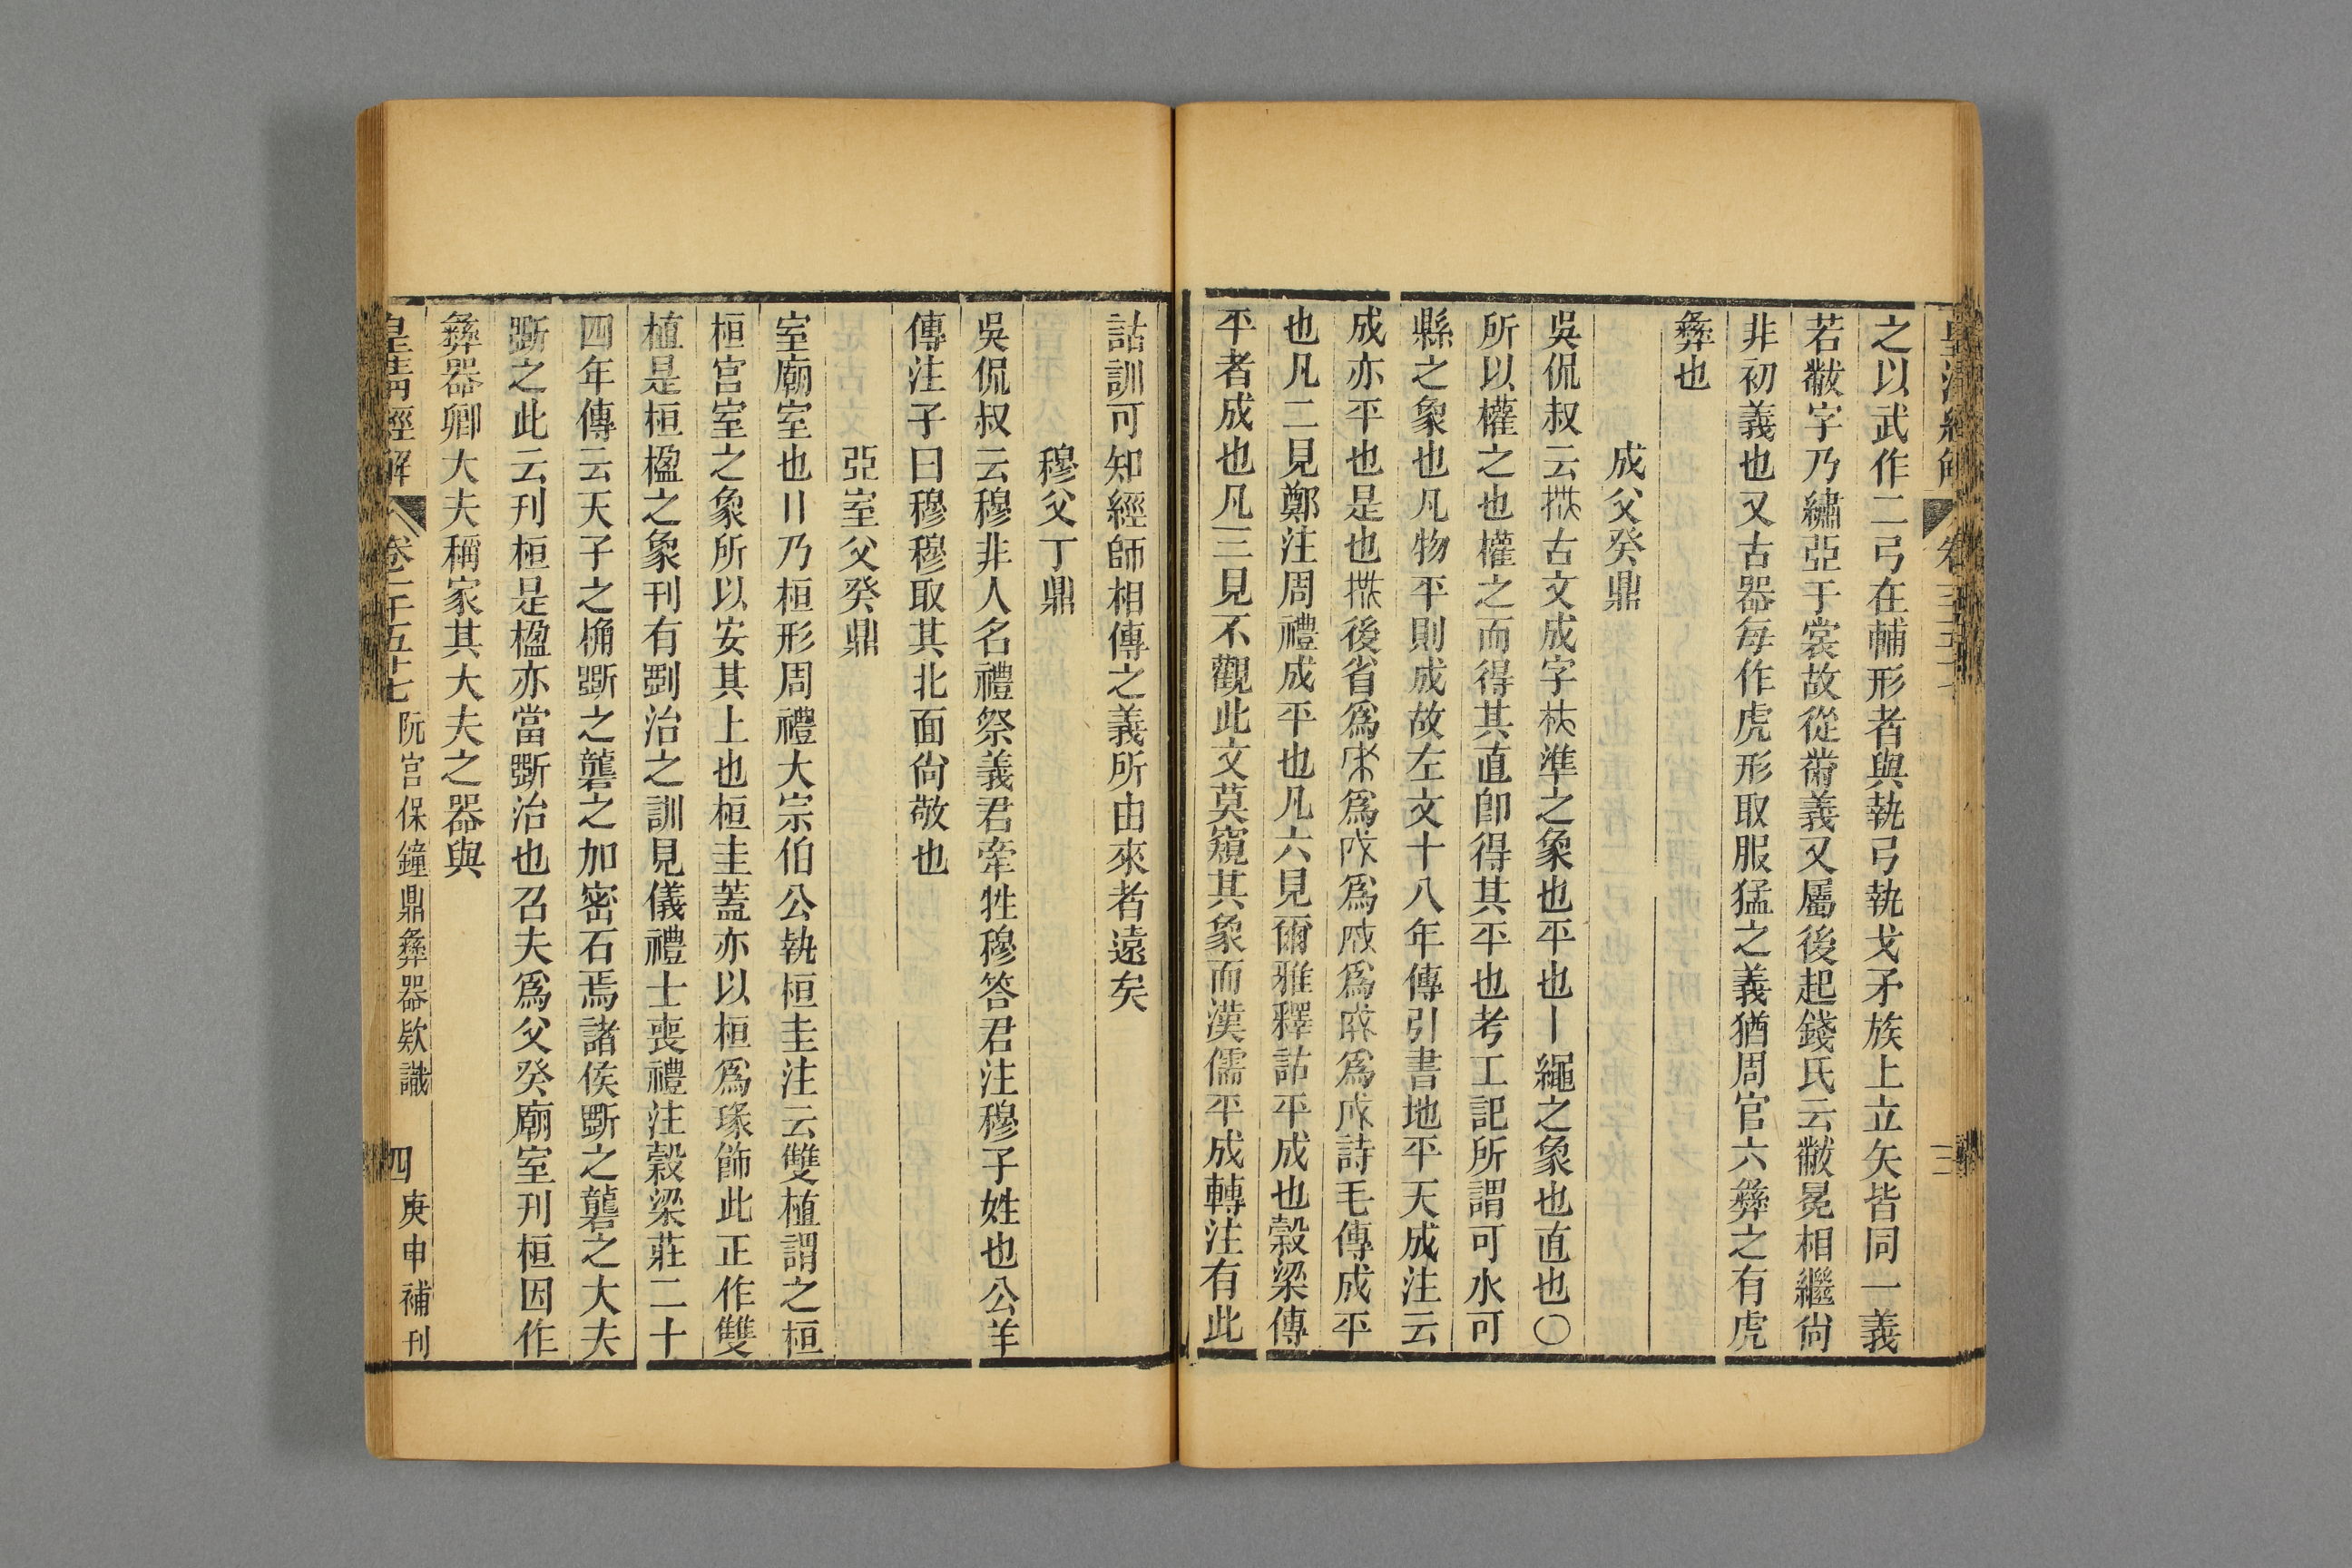 皇淸經解
卷
三
之以武作二弓在輔形者與執弓執戈矛族上立矢皆同一義
若黻字乃繡亞于裳故從黹義又屬後起錢氏云黻冕相繼尙
非初義也又古器每作虎形取服猛之義猶周官六彝之有虎
彝也
成父癸鼎
吳侃叔云古文成字準之象也平也丨繩之象也直也〇
所以權之也權之而得其直卽得其平也考工記所謂可水可
縣之象也凡物平則成故左文十八年傳引書地平天成注云
成亦平也是也後省爲爲爲爲爲詩毛傳成平
也凡二見鄭注周禮成平也凡六見爾雅釋詁平成也穀梁傳
平者成也凡三見不觀此文莫窺其象而漢儒平成轉注有此
詁訓可知經師相傳之義所由來者遠矣
穆父丁鼎
吳侃叔云穆非人名禮祭義君牽牲穆答君注穆子姓也公羊
傳注子曰穆穆取其北面尙敬也
亞室父癸鼎
室廟室也〢乃桓形周禮大宗伯公執桓圭注云雙植謂之桓
桓宫室之象所以安其上也桓圭蓋亦以桓爲瑑飾此正作雙
植是桓楹之象刊有劉治之訓見儀禮士喪禮注穀梁莊二十
四年傳云天子之桷斲之礱之加密石焉諸侯斲之礱之大夫
斲之此云刊桓是楹亦當斲治也召夫爲父癸廟室刊桓因作
彝器卿大夫稱家其大夫之器與
皇淸經解
卷一千五十七
阮宫保鐘鼎彝器欵識
四
庚申補刊